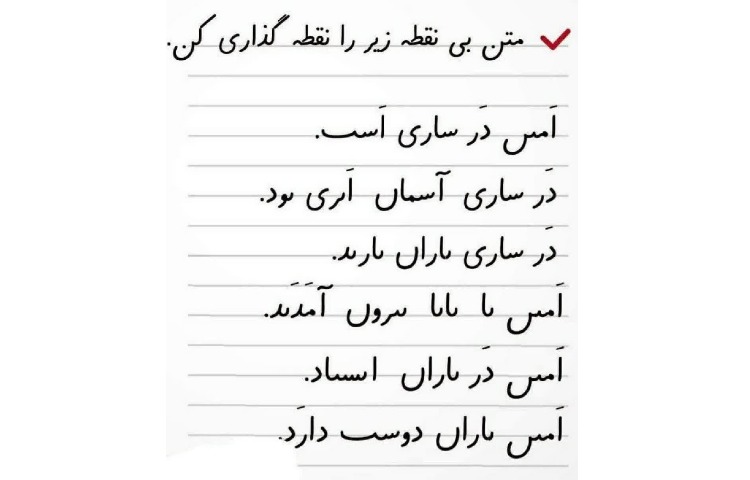 متن بی نقطه زیر را نقطه گذاری کن.
اَمٮں دَر ساری اَسٮ.
دَر ساری آسماں اَٮری ٮود.
دَر ساری ٮاراں ٮارٮد.
اَمٮں ٮا ٮاٮا ٮٮروں آمَدَٮد.
اَمٮں دَر ٮاراں اٮسٮاد.
اَمٮں ٮاراں دوسٮ دارَد.